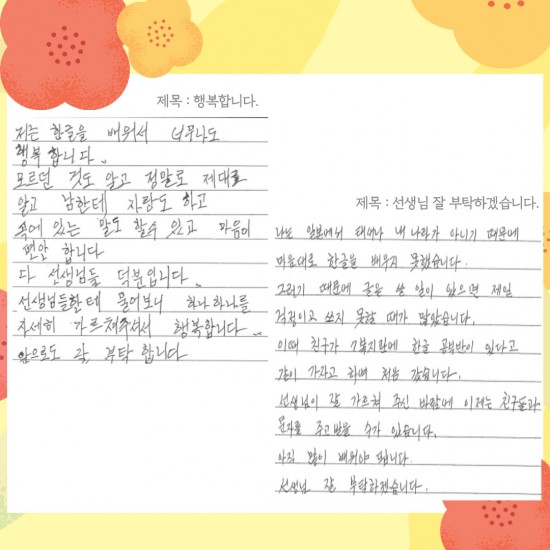 제목 : 행복합니다.
저는 한글을 배워서 너무나도
행복 합니다.
모르던 것도 알고 정말로 제대로
알고 남한테 자랑도 하고
속에 있는 말도 할수 있고 마음이
편안 합니다
다 선생님들 덕분입니다.
선생님들한테 물어보니 하나하나를
자세히 가르쳐주셔서 행복합니다.
앞으로도 잘 부탁 합니다
제목 : 선생님 잘 부탁하겠습니다.
나는 일본에서 태어나 내 나라가 아니기 때문에
마음대로 한글을 배우지 못했습니다.
그러기 때문에 글을 쓸 일이 있으면 제일
걱정이고 쓰지 못할 때가 많았습니다.
이때 친구가 복지관에 한글 공부반이 있다고
같이 가자고 하며 처음 갔습니다.
선생님이 잘 가르쳐 주신 바람에 이제는 친구들과
문자를 주고받을 수가 있습니다.
아직 많이 배워야 됩니다.
선생님 잘 부탁하겠습니다.